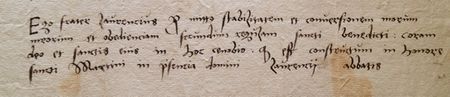 Ego frater laurencius ꝓmitto stabilitatem et conuersionem morum
meorum et obedienciam secundum regulam sancti benedicti : coram
deo et sanctis eius in hoc cenobio : qd est constructum in honore
sancti Martini in pñcia domini laurencij abbatis